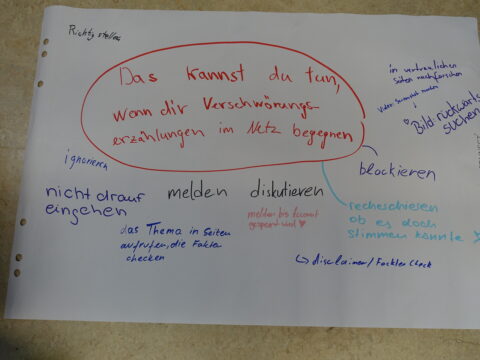 Richtigstellen
Das kannst du tun,
wenn dir Verschwörungs-
erzählungen im Netz begegnen
in vertraulichen
Seiten nachforschen
Bildrückwärts
suchen
ignorieren
blockieren
nicht drauf
eingehen
melden
diskutieren
melden bis Account
gesperrt wird
recherchieren
ob es doch
stimmen könnte
das Thema in Seiten
aufrufen, die Fakten
checken
disclaimer/Fackten Check